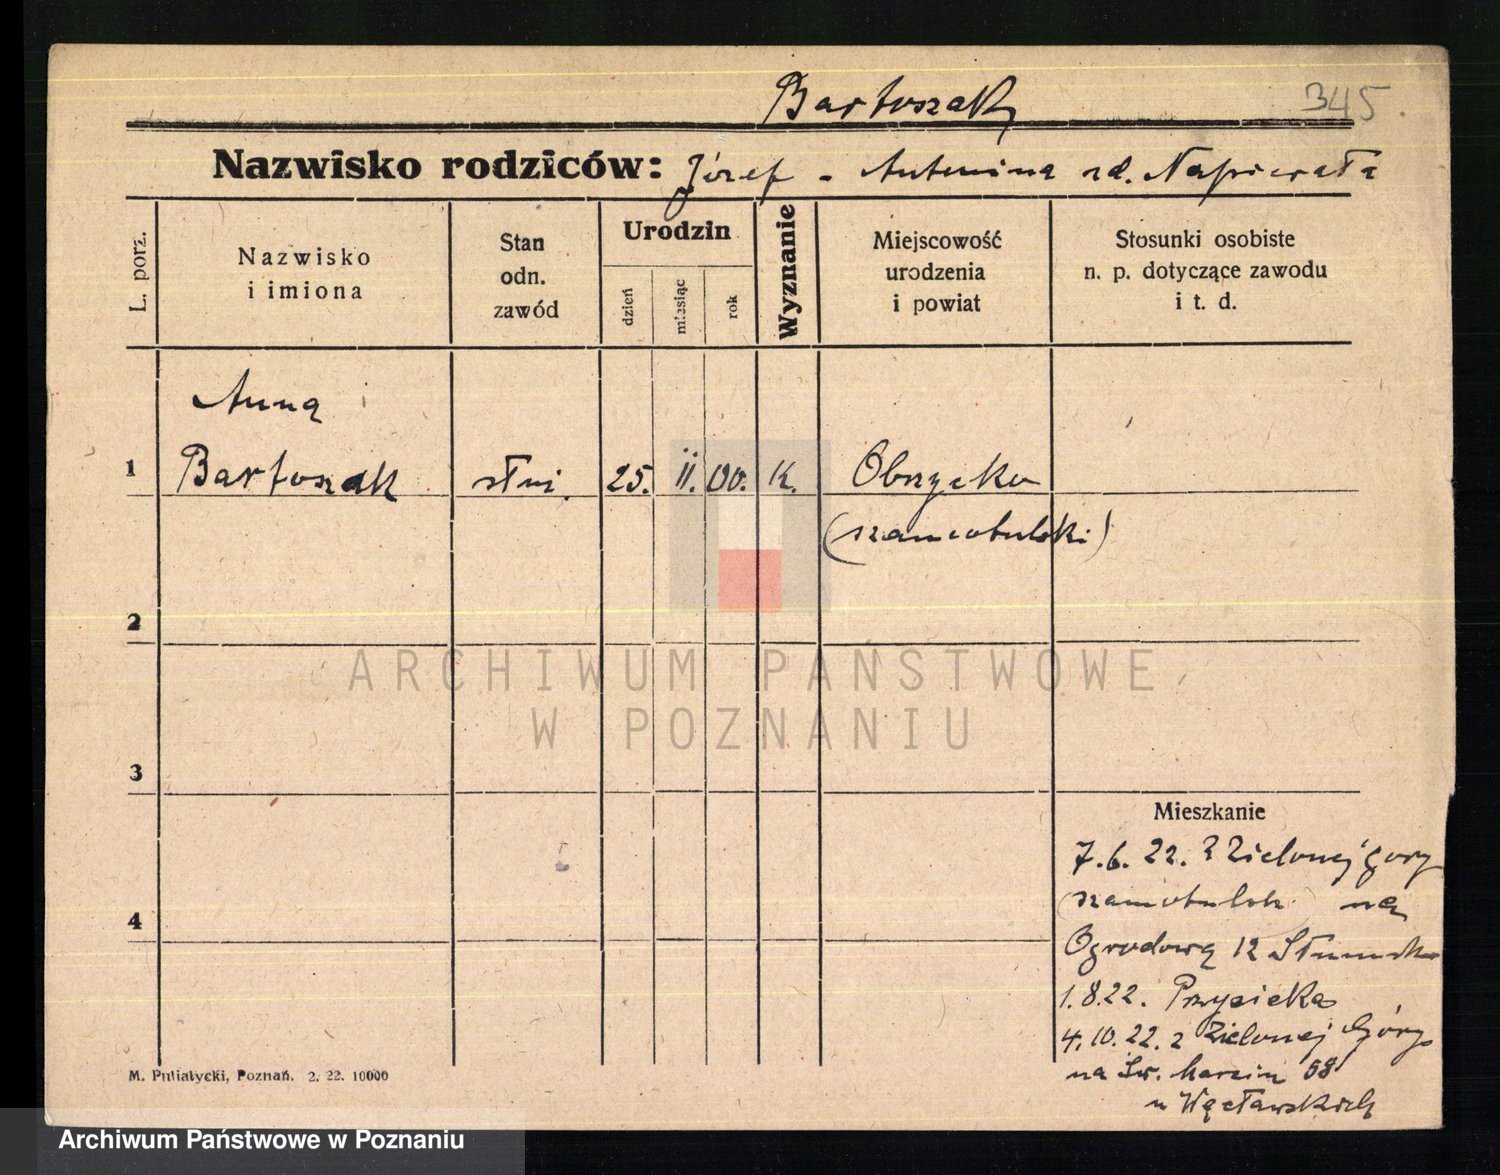 Bartoszak
345
Nazwisko rodziców: Józef - Antonina zd. Napierała
L. porz.
Nazwisko
i imiona
Stan
odn.
zawód
Urodzin
dzień
miesiąc
rok
Wyznanie
Miejscowość
urodzenia
i powiat
Stosunki osobiste
n. p. dotyczące zawodu
i t. d.
Anna
1 Bartoszak służ. 25. II. 00. K. Obrzycko
(szamotulski)
2
3
4
Mieszkanie
7.6.22. z Zielonej góry
na
Ogrodową 12
1.8.22. Przysieka
4.10.22. z Zielonej Góry
na Św. Marcin 58
u Węcławskich
M. Putiatycki, Poznań. 2. 22. 10000
ARCHIWUM PAŃSTWOWE
W POZNANIU
Archiwum Państwowe w Poznaniu